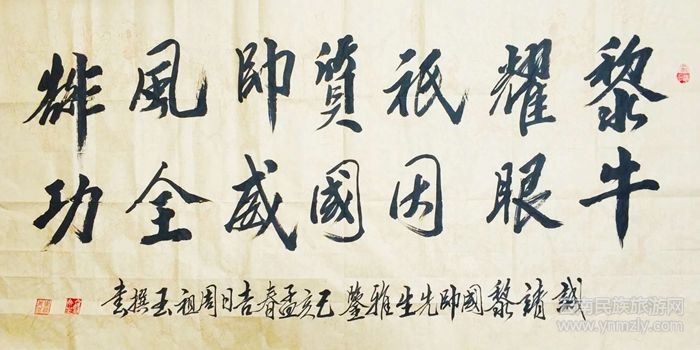 黎牛
耀眼
祇因
質國
帥威
風全
靠功
誠請黎國帥先生雅鑒 己亥孟春吉日周祖玉撰書
云南民族旅游网
www.ynmzly.com